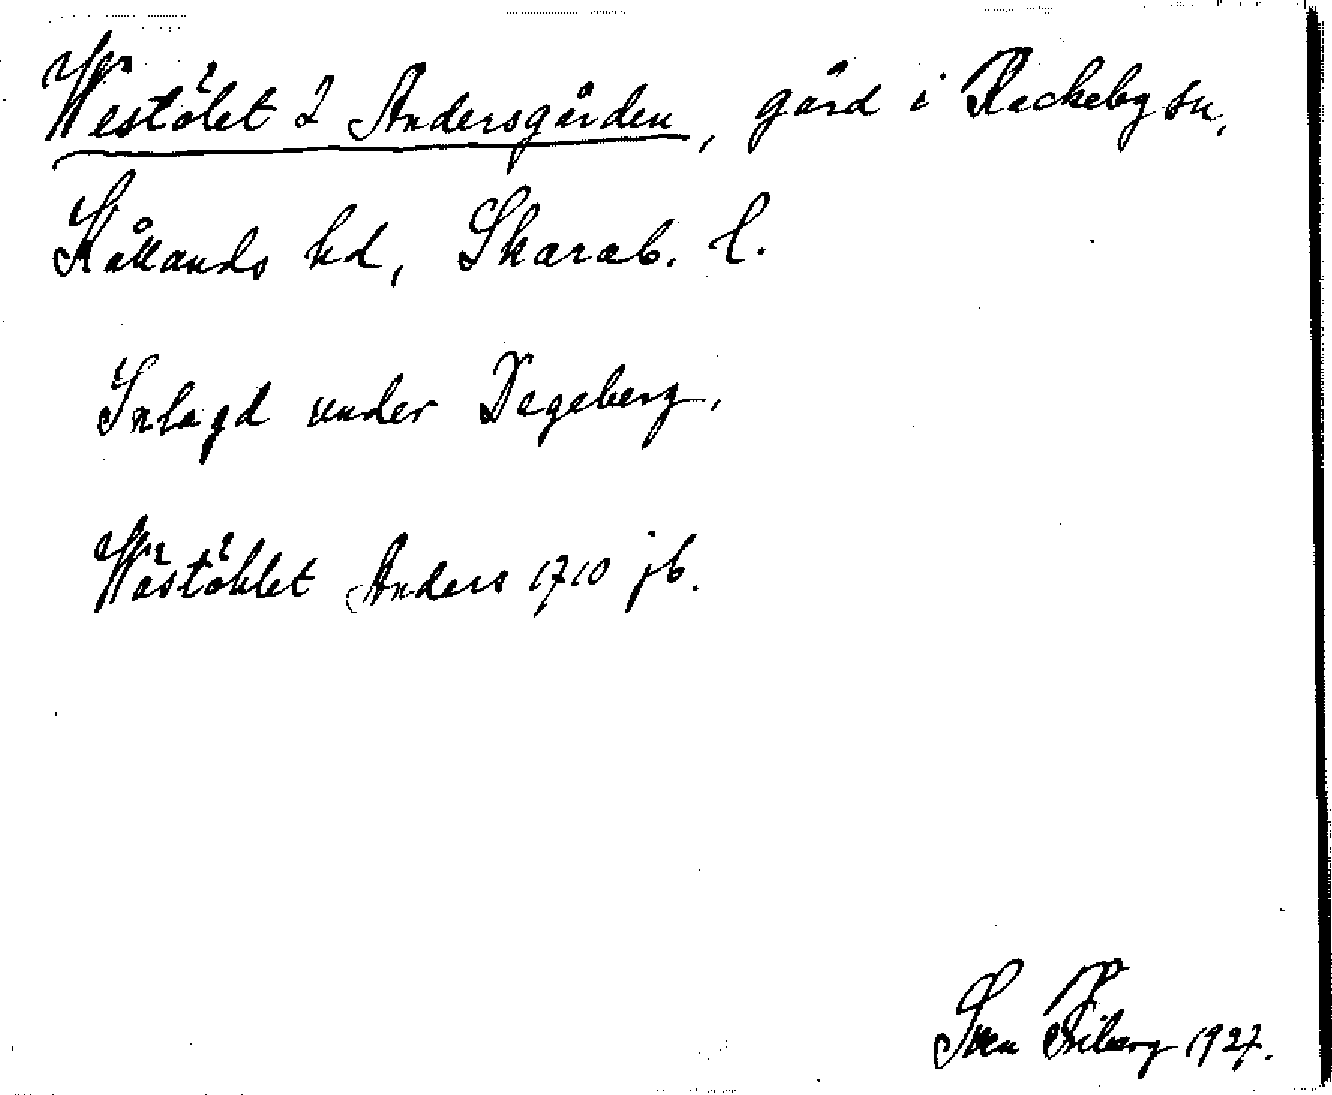 Westölet 2 Andersgården, gård i Rackeby sn,
Kållands hd, Skarab. l.
Inlagd under Degeberg.
Wästöhlet Anders 1710 jb.
Sven Friberg 1927.